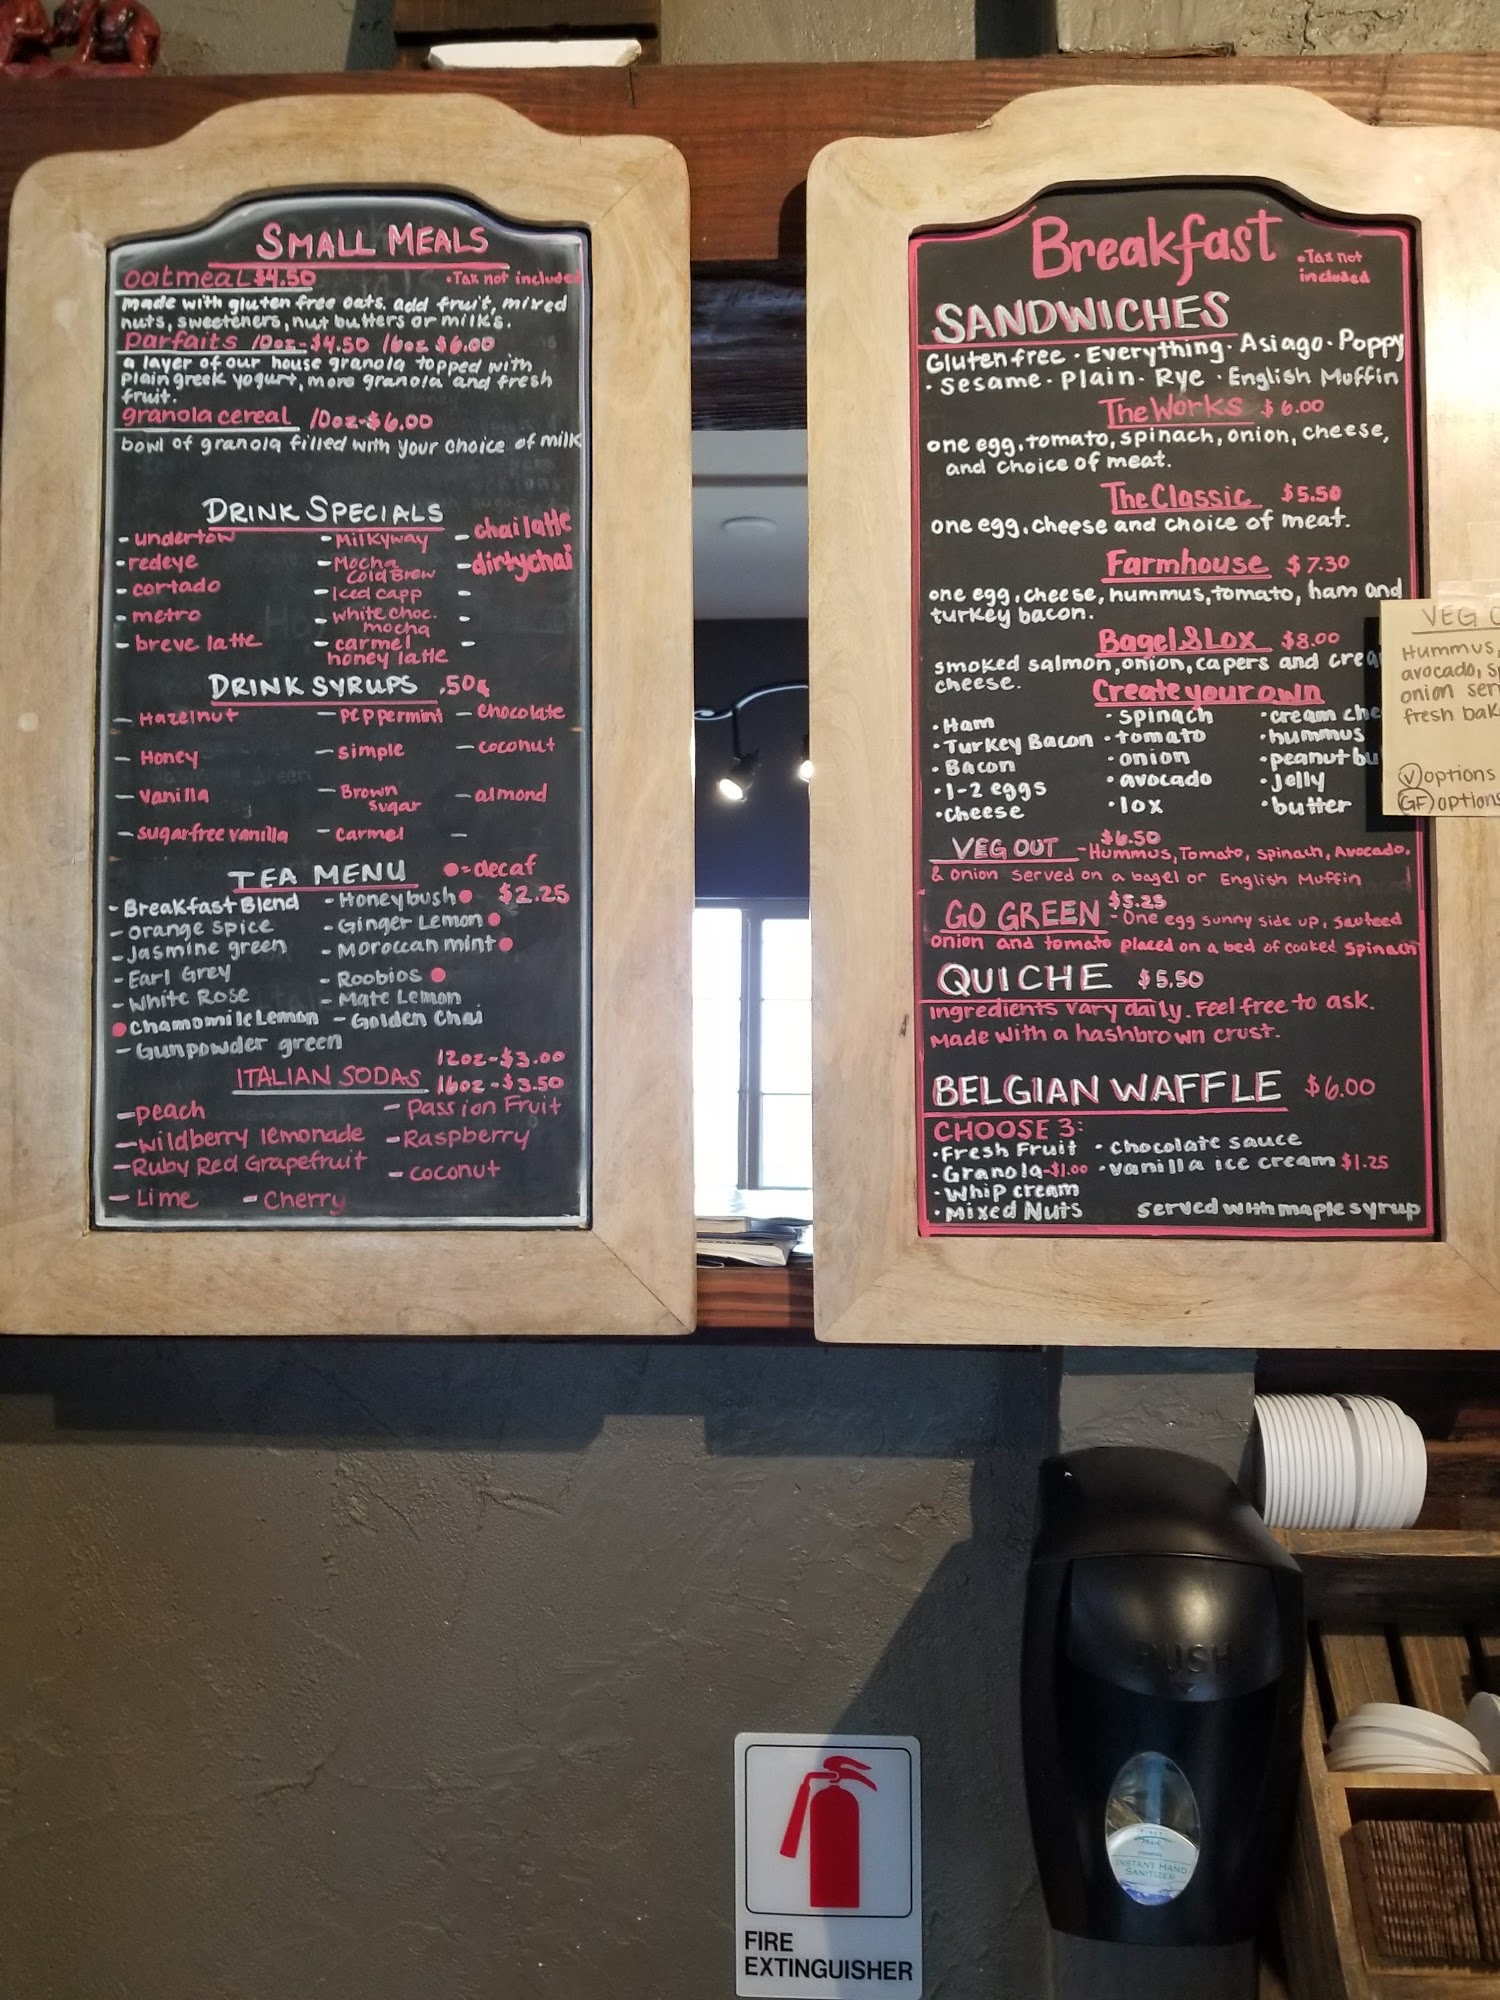 SMALL MEALS
oatmeal $4.50 •Tax not included
made with gluten free oats. add fruit, mixed
nuts, sweeteners, nut butters or milks.
parfaits 10oz-$4.50 16oz $6.00
a layer of our house granola topped with
plain greek yogurt, more granola and fresh
fruit.
granola cereal 10oz-$6.00
bowl of granola filled with your choice of milk
DRINK SPECIALS
- undertow - Milkyway - chai latte
- redeye - Mocha Cold Brew - dirty chai
- cortado - Iced capp -
- metro - white choc. mocha -
- breve latte - carmel honey latte -
DRINK SYRUPS .50¢
- Hazelnut - peppermint - chocolate
- Honey - simple - coconut
- vanilla - Brown sugar - almond
- sugarfree vanilla - carmel -
TEA MENU •=decaf
- Breakfast Blend - Honeybush • $2.25
- orange spice - Ginger Lemon •
- Jasmine green - Moroccan mint •
- Earl Grey - Roobios •
- White Rose - Mate Lemon
• Chamomile Lemon - Golden Chai
- Gunpowder green
12oz-$3.00
ITALIAN SODAS 16oz-$3.50
- peach - Passion Fruit
- wildberry lemonade - Raspberry
- Ruby Red Grapefruit - coconut
- Lime - Cherry
Breakfast •Tax not
included
SANDWICHES
Gluten free · Everything · Asiago · Poppy
· Sesame · Plain · Rye · English Muffin
The Works $6.00
one egg, tomato, spinach, onion, cheese,
and choice of meat.
The Classic $5.50
one egg, cheese and choice of meat.
Farmhouse $7.30
one egg, cheese, hummus, tomato, ham and
turkey bacon.
Bagel & Lox $8.00
smoked salmon, onion, capers and crea
cheese.
Create your own
• Ham • spinach • cream che
• Turkey Bacon • tomato • hummus
• Bacon • onion • peanut bu
• 1-2 eggs • avocado • jelly
• cheese • lox • butter
$6.50
VEG OUT - Hummus, Tomato, Spinach, Avocado,
& onion served on a bagel or English Muffin
$5.25
GO GREEN - One egg sunny side up, sauteed
onion and tomato placed on a bed of cooked spinach
QUICHE $5.50
ingredients vary daily. Feel free to ask.
Made with a hashbrown crust.
BELGIAN WAFFLE $6.00
CHOOSE 3:
• Fresh Fruit • chocolate sauce
• Granola-$1.00 • vanilla ice cream $1.25
• Whip cream
• Mixed Nuts served with maple syrup
VEG
Hummus,
avocado, sp
onion ser
fresh bak
(V) options
(GF) options
PUSH
INSTANT HAND
SANITIZER
FIRE
EXTINGUISHER